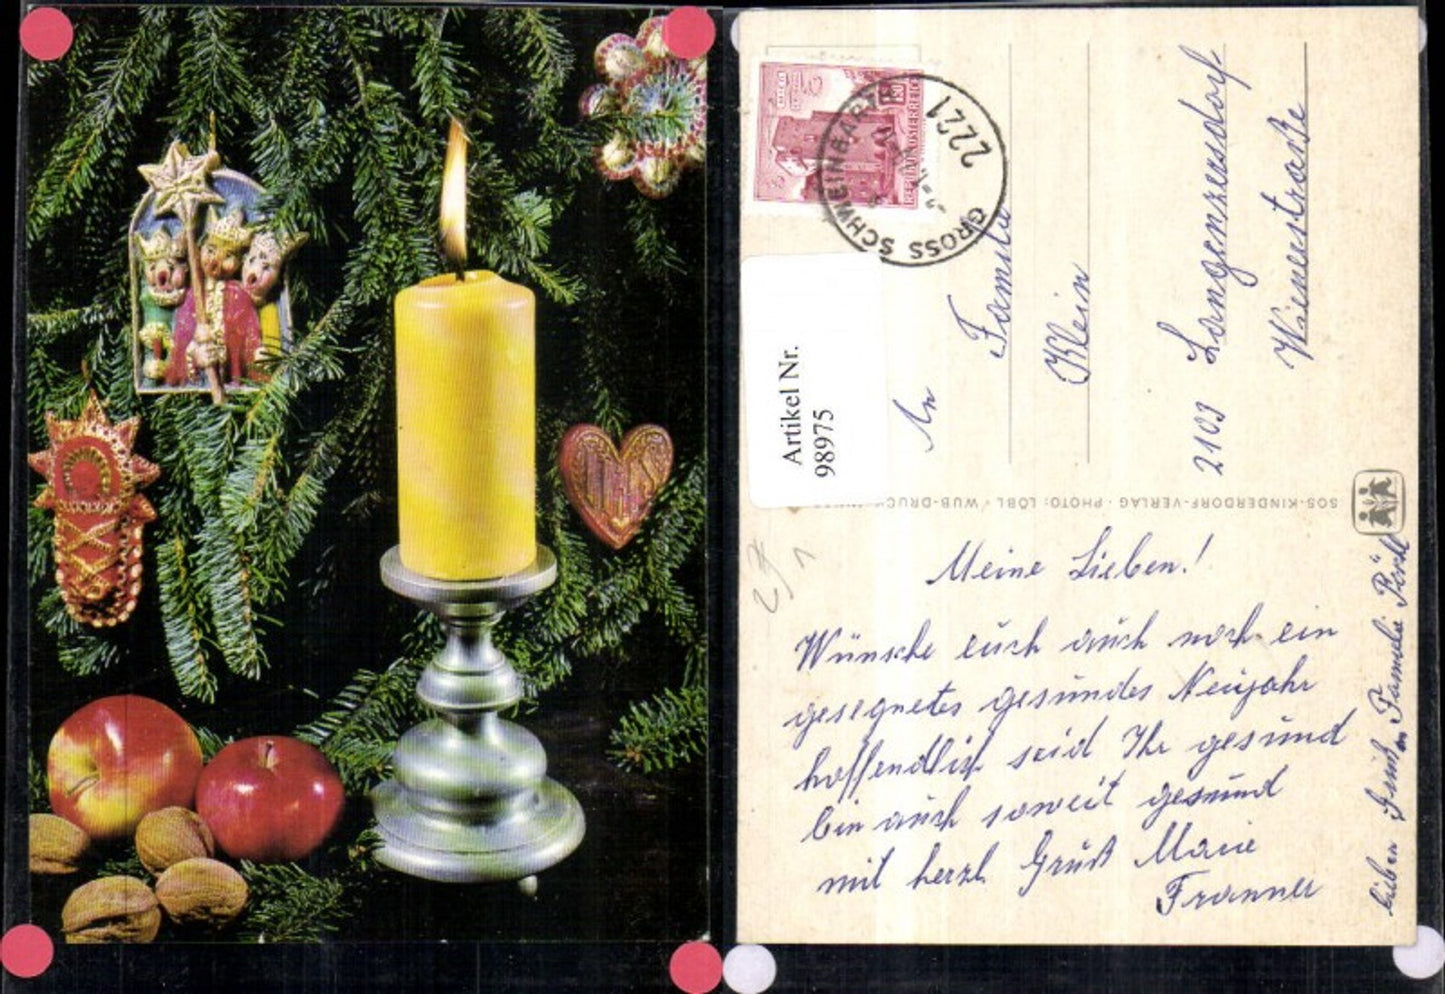 IHS
REPUBLIK ÖSTERREICH
2221
GROSS SCHWEINBARTH
Artikel Nr.
98975
An
Familie
Klein
2103 Langenzersdorf
Wienerstraße
SOS-KINDERDORF-VERLAG · PHOTO: LÖBL · WUB-DRUCK
Meine Lieben!
Wünsche euch auch noch ein
gesegnetes gesundes Neujahr
hoffendlich seid Ihr gesund
bin auch soweit gesund
mit herzl Gruß Marie
Franner
Lieben Gruß an Familie